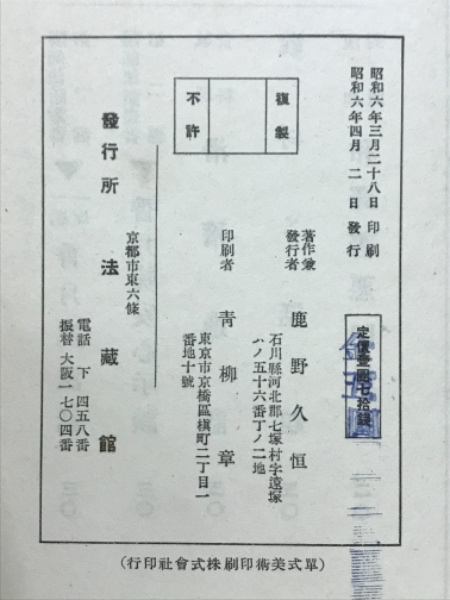 昭和六年三月二十八日 印刷
昭和六年四月 二 日 發行
定價壹圓七拾錢
複製
不許
著作兼
發行者
鹿野久恒
石川縣河北郡七塚村字遠塚
ハノ五十六番丁ノ二地
印刷者
青柳章
東京市京橋區槇町二丁目一
番地十號
發行所
京都市東六條
法藏館
電話 下 四五八番
振替 大阪一七〇四番
(單式美術印刷株式會社印行)